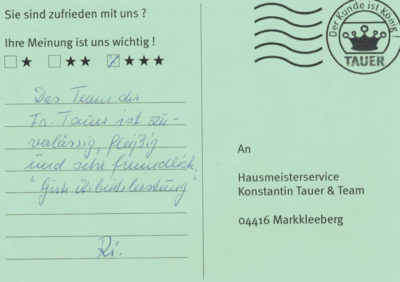 Sie sind zufrieden mit uns ?
Ihre Meinung ist uns wichtig !
Das Team der
Fa. Tauer ist zu-
verlässig, fleißig
und sehr freundlich.
"Gute Arbeitsleistung"
Ri.
Der Kunde ist König !
TAUER
An
Hausmeisterservice
Konstantin Tauer & Team
04416 Markkleeberg